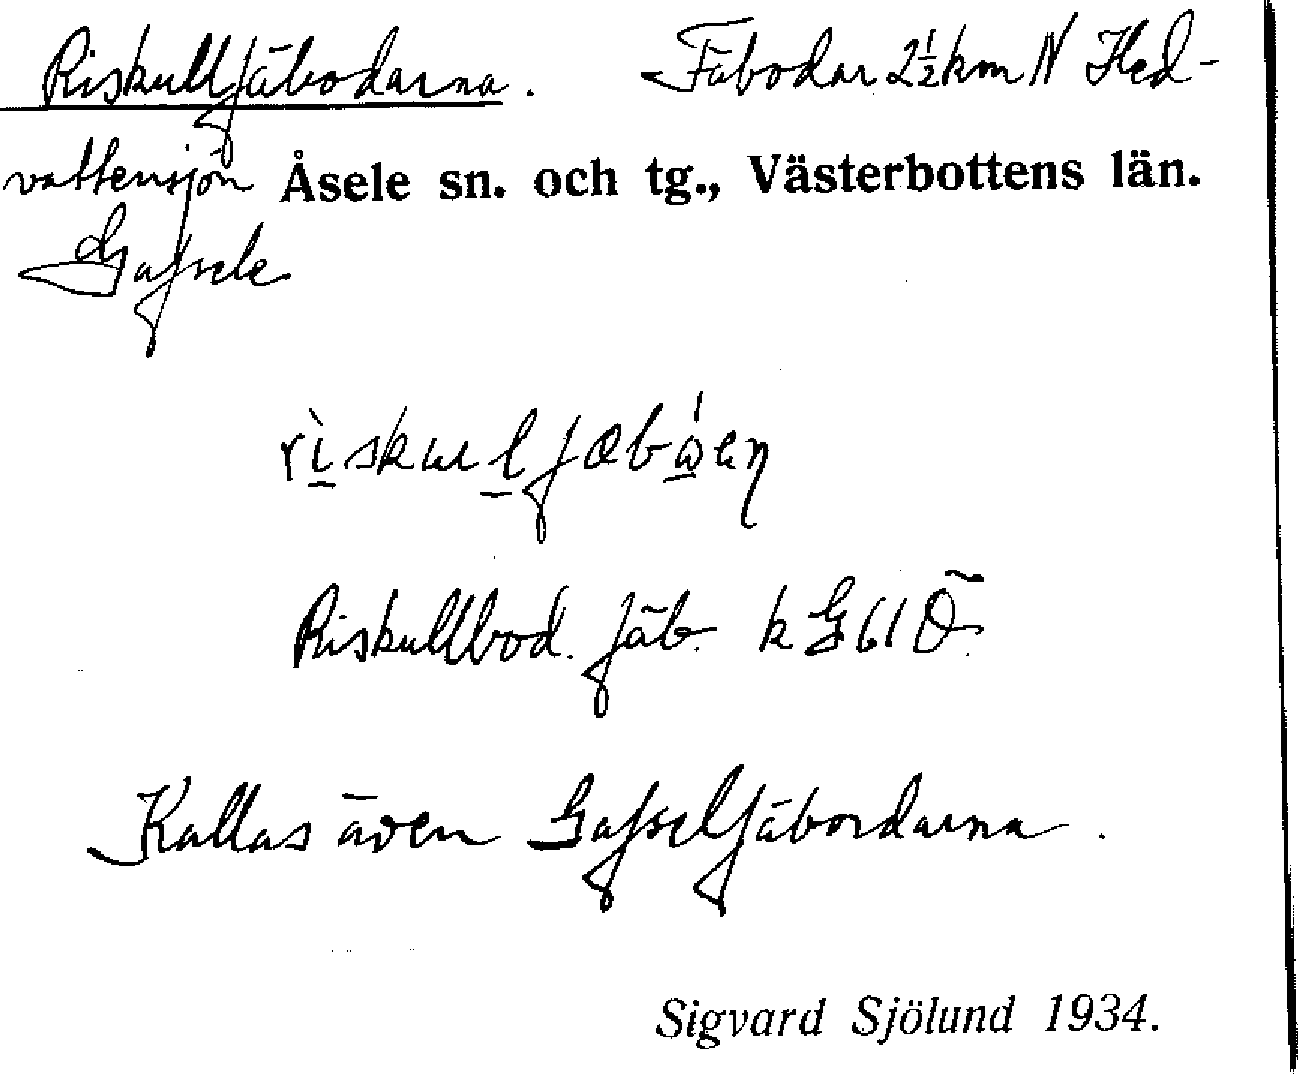 Riskullfäbodarna. Fäbodar 2½ km N Hed-
vattensjön Åsele sn. och tg., Västerbottens län.
Gafsele
Riskullbod. fäb. k G 61 Ö
Kallas även Gafselfäbordarna.
Sigvard Sjölund 1934.